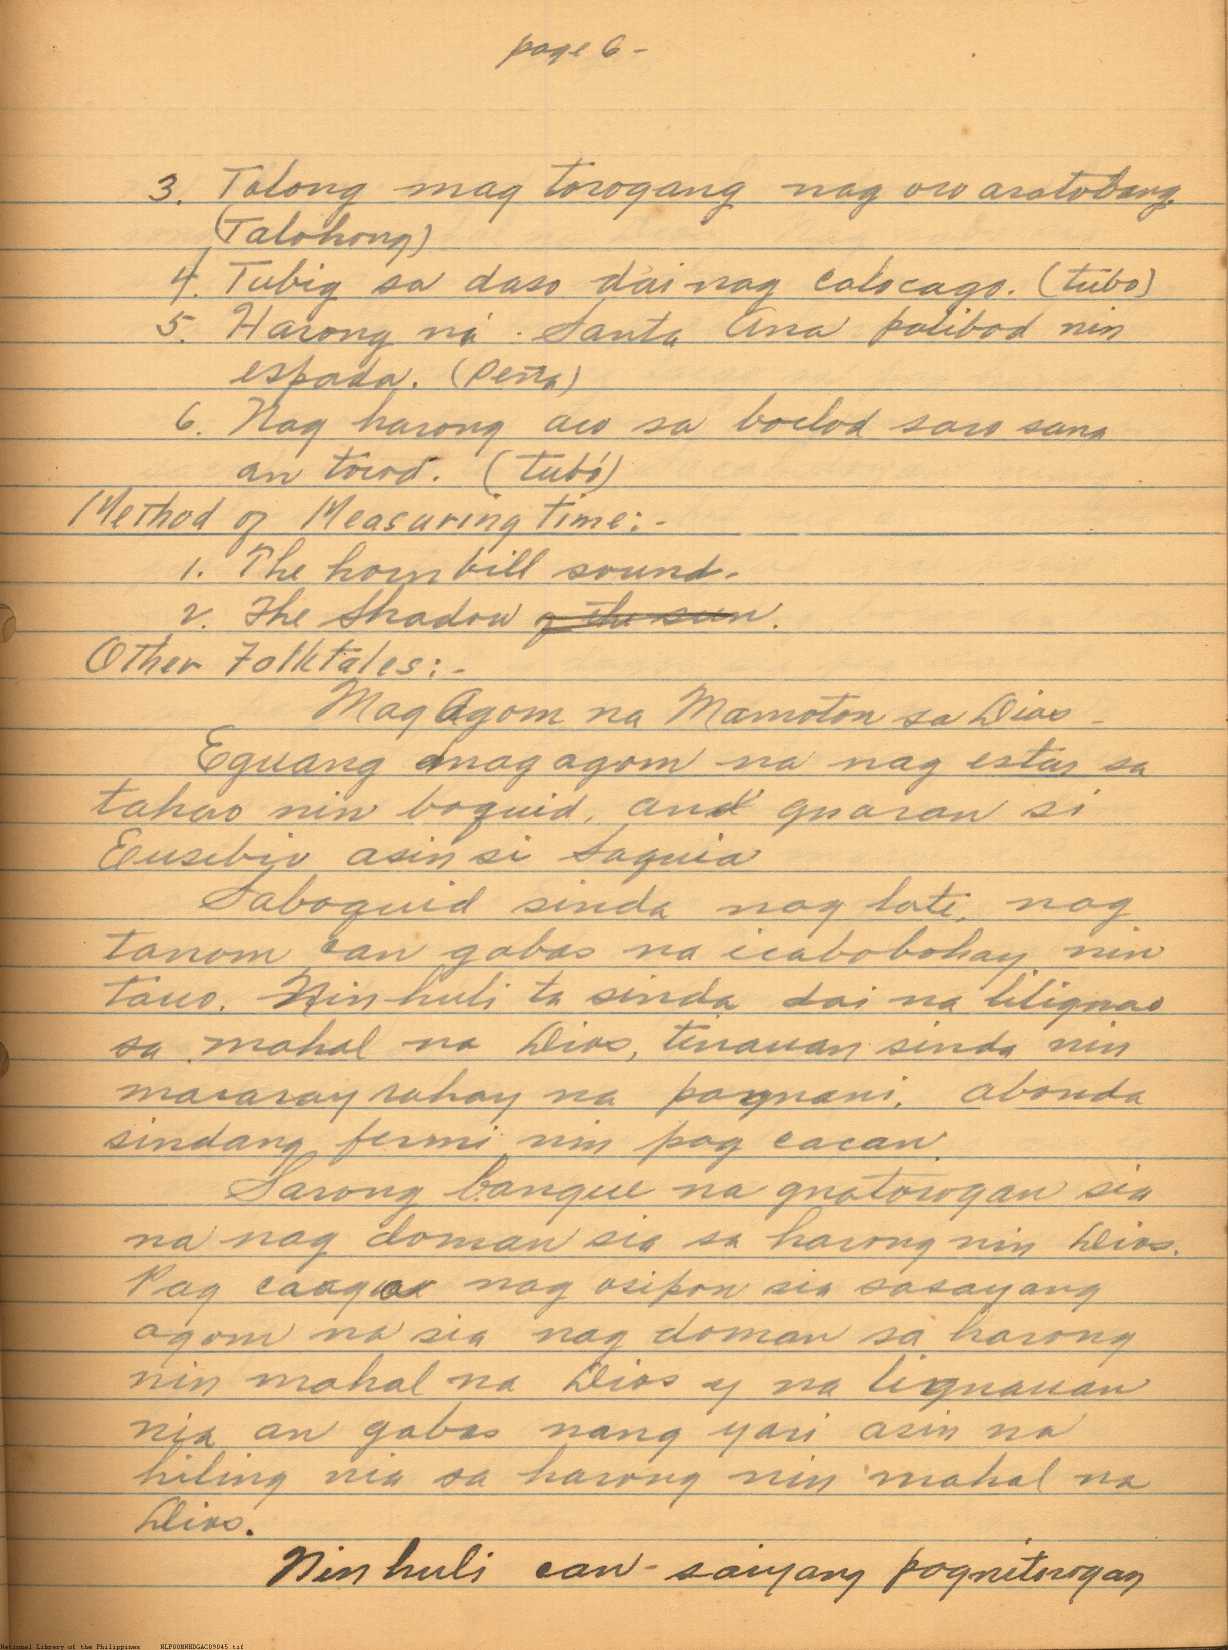 page 6 -
3. Tolong mag torogang nag oro aratobang.
(Talohong)
4. Tubig sa daso dai nag calocago. (tubo)
5. Harong ná Santa Ana palibod nin
espada. (Peña)
6. Nag harong aco sa boclod saro sana
an tocod. (tubó)
Method of Measuring time:-
1. The hornbill sound.
2. The Shadow of the sun.
Other Folktales:-
Mag Agom na Mamoton sa Dios -
Eguang magagom na nag estar sa
tahao nin boquid, and gnaran si
Eusebio asin si Saguia
Saboquid sinda nag late, nag
tanom can gabas na icabobohay nin
tauo. Nin huli ta sinda dai na lilignao
sa mahal na Dios, tinauan sinda nin
macaray rahay na pagnani, abonda
sindang fermi nin pag cacan.
Sarong bangue na gnatorogan sia
na nag doman sia sa harong nin Dios.
Pag nag osipon sia sasayang
agom na sia nag doman sa harong
nin mahal na Dios y na lignauan
nia an gabas nang yari asin na
hiling nia sa harong nin mahal na
Dios.
Nin huli can - saiyang pagnitorogan
National Library of the Philippines NLPOOMNHDGAC09045.tif